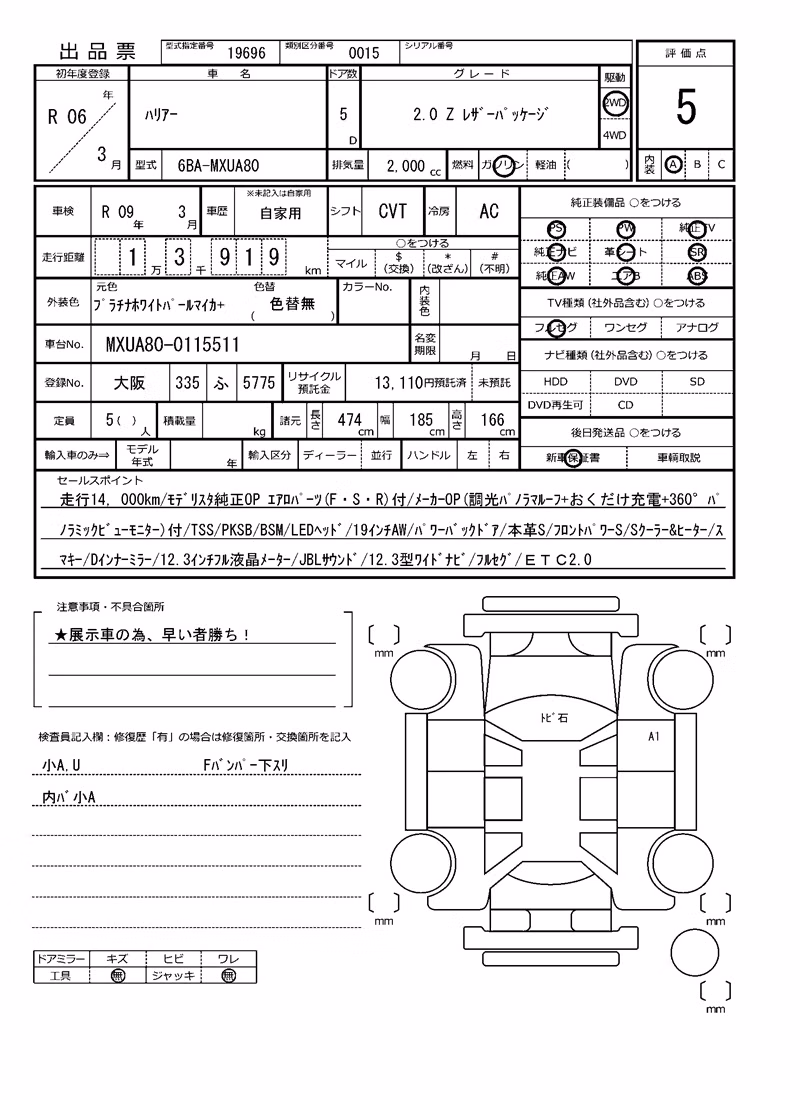 出品票 型式指定番号 19696 類別区分番号 0015 シリアル番号
評価点
5
内装 A B C
初年度登録 車名 ドア数 グレード 駆動
R 06 年 3 月 ﾊﾘｱｰ 5 D 2.0 Z ﾚｻﾞｰﾊﾟｯｹｰｼﾞ 2WD
4WD
型式 6BA-MXUA80 排気量 2,000 cc 燃料 ガソリン 軽油 ( )
車検 R 09 年 3 月 車歴 ※未記入は自家用 自家用 シフト CVT 冷房 AC
走行距離 1 万 3 千 9 1 9 km ○をつける
マイル $ (交換) * (改ざん) # (不明)
外装色 元色 ﾌﾟﾗﾁﾅﾎﾜｲﾄﾊﾟｰﾙﾏｲｶ+ 色替 ( 色替無 ) カラーNo. 内装色
車台No. MXUA80-0115511 名変期限 月 日
登録No. 大阪 335 ふ 5775 リサイクル預託金 13,110円預託済 未預託
定員 5( ) 人 積載量 kg 諸元 長さ 474 cm 幅 185 cm 高さ 166 cm
輸入車のみ⇒ モデル年式 年 輸入区分 ディーラー 並行 ハンドル 左 右
純正装備品 ○をつける
PS PW 純正TV
純正ナビ 革シート SR
純正AW エアB ABS
TV種類(社外品含む) ○をつける
フルセグ ワンセグ アナログ
ナビ種類(社外品含む) ○をつける
HDD DVD SD
DVD再生可 CD
後日発送品 ○をつける
新車保証書 車輌取説
セールスポイント
走行14，000km/ﾓﾃﾞﾘｽﾀ純正OP ｴｱﾛﾊﾟｰﾂ(F・S・R)付/ﾒｰｶｰOP(調光ﾊﾟﾉﾗﾏﾙｰﾌ+おくだけ充電+360° ﾊﾟ
ﾉﾗﾐｯｸﾋﾞｭｰﾓﾆﾀｰ)付/TSS/PKSB/BSM/LEDﾍｯﾄﾞ/19ｲﾝﾁAW/ﾊﾟﾜｰﾊﾞｯｸﾄﾞｱ/本革S/ﾌﾛﾝﾄﾊﾟﾜｰS/Sｸｰﾗｰ&ﾋｰﾀｰ/ｽ
ﾏｷｰ/Dｲﾝﾅｰﾐﾗｰ/12.3ｲﾝﾁﾌﾙ液晶ﾒｰﾀｰ/JBLｻｳﾝﾄﾞ/12.3型ﾜｲﾄﾞﾅﾋﾞ/ﾌﾙｾｸﾞ/ＥＴＣ2.0
注意事項・不具合箇所
★展示車の為、早い者勝ち！
検査員記入欄：修復歴「有」の場合は修復箇所・交換箇所を記入
小A,U Fﾊﾞﾝﾊﾟｰ下ｽﾘ
内ﾊﾞ小A
mm mm
ﾄﾋﾞ石 A1
mm mm
mm
ドアミラー キズ ヒビ ワレ
工具 無 ジャッキ 無